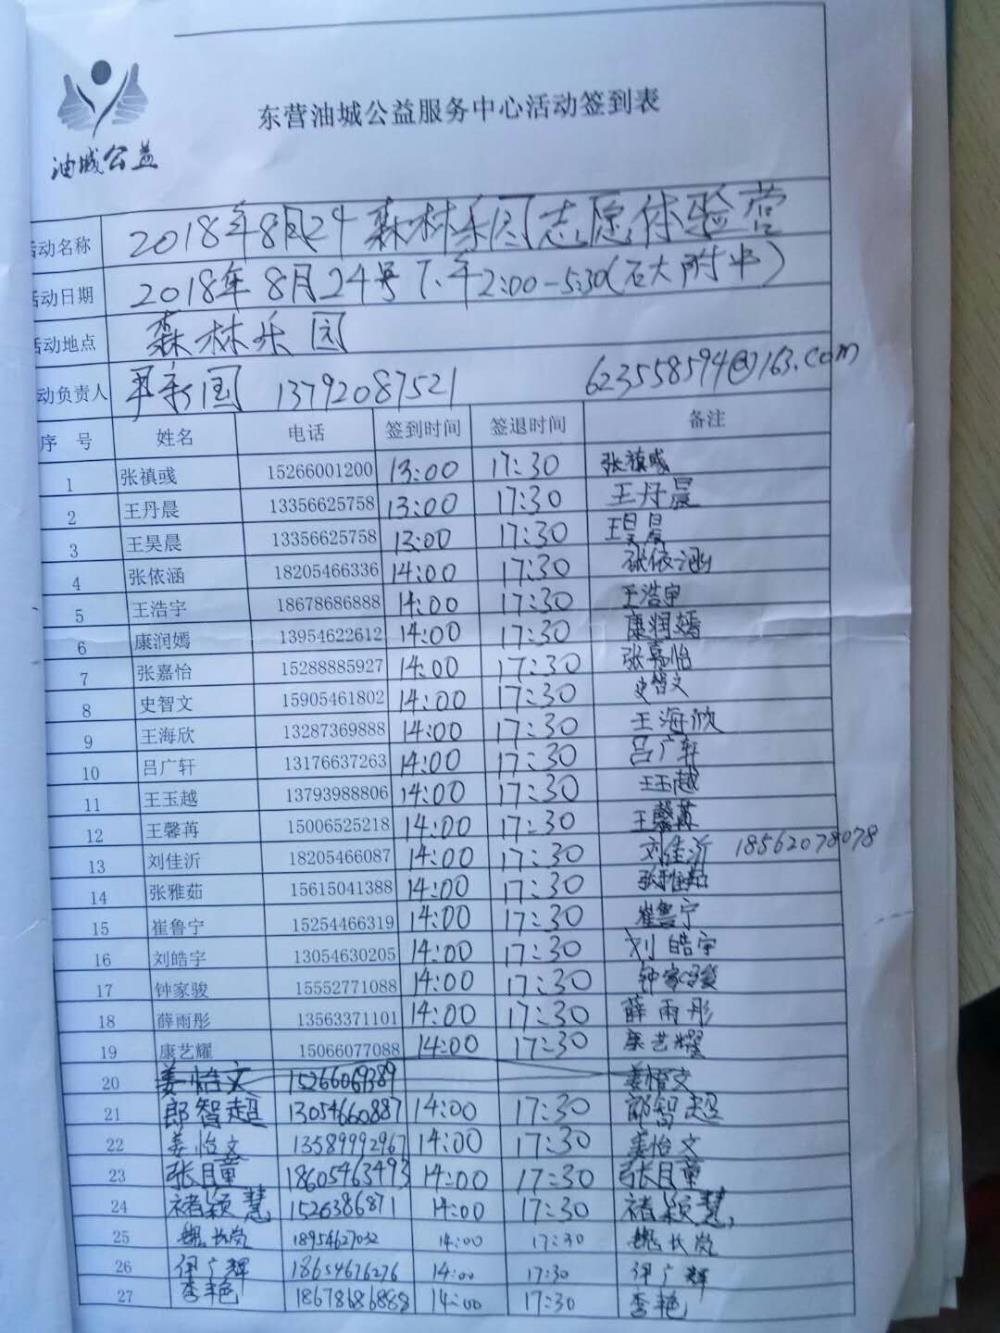 油城公益
东营油城公益服务中心活动签到表
活动名称 2018年8月24 森林乐园志愿体验营
活动日期 2018年8月24号下午2:00-5:30(石大附中)
活动地点 森林乐园
活动负责人 新国 13792087521 623558594@163.com
序号 姓名 电话 签到时间 签退时间 备注
1 张禛彧 15266001200 13:00 17:30 张禛彧
2 王丹晨 13356625758 13:00 17:30 王丹晨
3 王昊晨 13356625758 13:00 17:30 王昊晨
4 张依涵 18205466336 14:00 17:30 张依涵
5 王浩宇 18678686888 14:00 17:30 王浩宇
6 康润嫣 13954622612 14:00 17:30 康润嫣
7 张嘉怡 15288885927 14:00 17:30 张嘉怡
8 史智文 15905461802 14:00 17:30 史智文
9 王海欣 13287369888 14:00 17:30 王海欣
10 吕广轩 13176637263 14:00 17:30 吕广轩
11 王玉越 13793988806 14:00 17:30 王玉越
12 王馨苒 15006525218 14:00 17:30 王馨苒
13 刘佳沂 18205466087 14:00 17:30 刘佳沂 18562078078
14 张雅茹 15615041388 14:00 17:30 张雅茹
15 崔鲁宁 15254466319 14:00 17:30 崔鲁宁
16 刘皓宇 13054630205 14:00 17:30 刘皓宇
17 钟家骏 15552771088 14:00 17:30 钟家骏
18 薛雨彤 13563371101 14:00 17:30 薛雨彤
19 康艺耀 15066077088 14:00 17:30 康艺耀
20 姜怡文 15266069389 姜怡文
21 郎智超 13054660887 14:00 17:30 郎智超
22 姜怡文 13589992967 14:00 17:30 姜怡文
23 张月童 18605463493 14:00 17:30 张月童
24 褚颖慧 1526386871 14:00 17:30 褚颖慧
25 魏长岚 18954627032 14:00 17:30 魏长岚
26 伊广辉 18654676276 14:00 17:30 伊广辉
27 李艳 18678686888 14:00 17:30 李艳